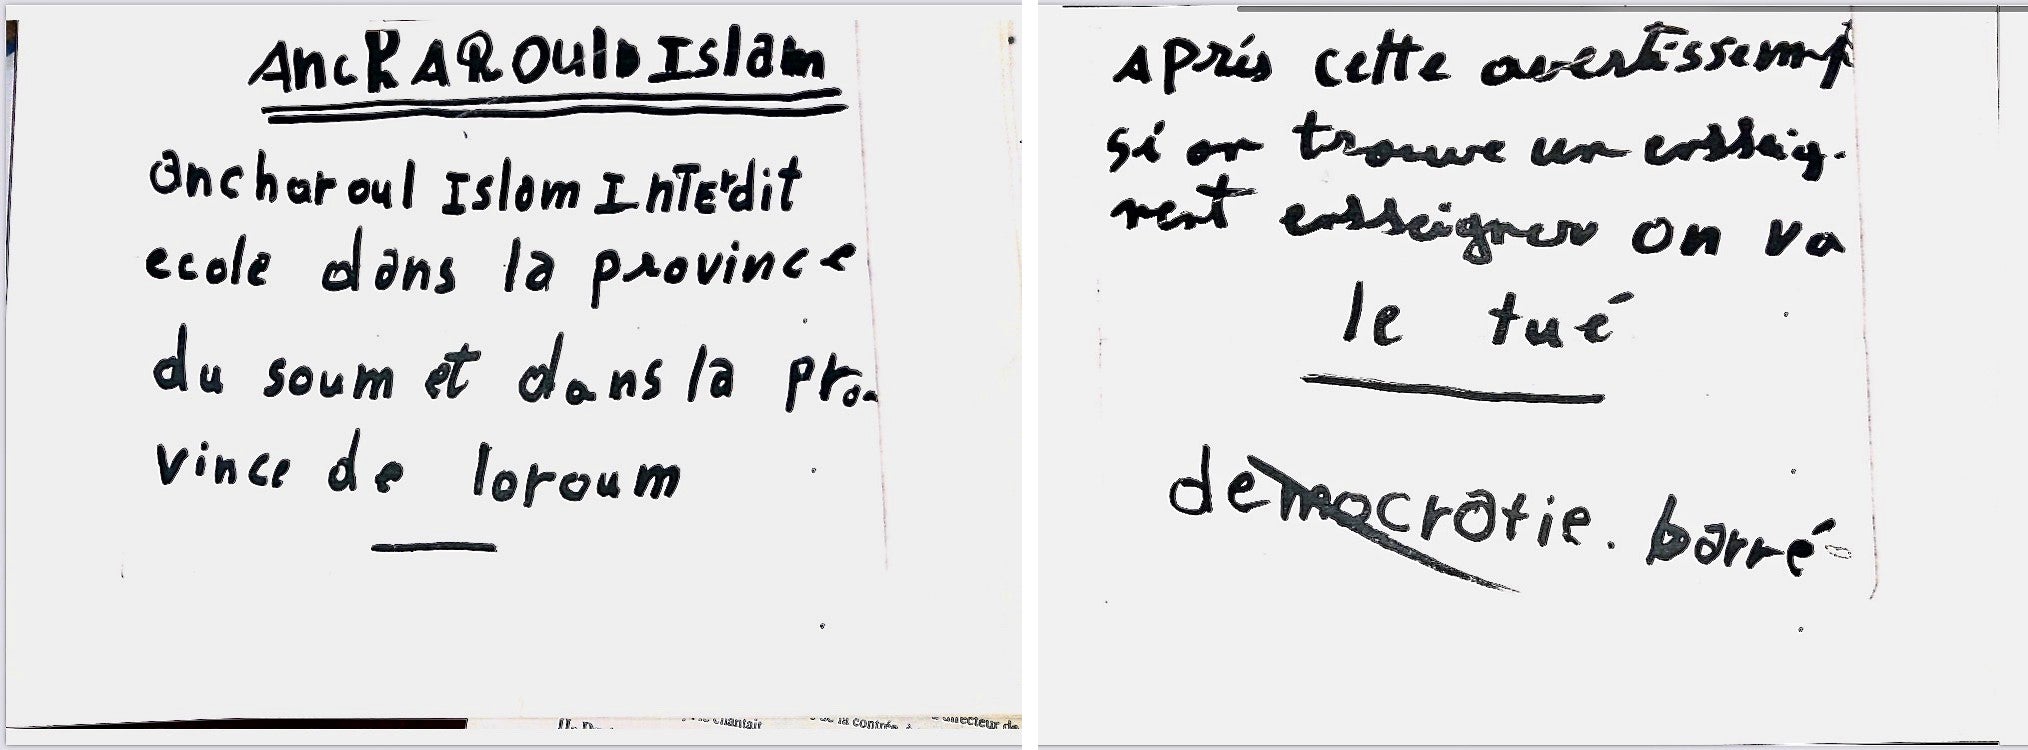 AncRAROulD Islam
ancharoul Islam InTErdit
ecole dans la province
du soum et dans la pro-
vince de loroum
chantait
de la contrée
directeur de
Après cette avertissemt
si on trouve un ensseig-
nent ensseigner on va
le tué
democratie. barré